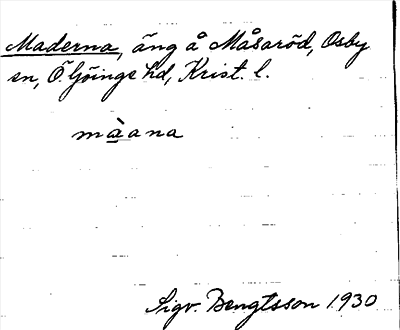 Maderna, äng å Måsaröd, Osby
sn, Ö. Göinge hd, Krist. l.
màana
Sigv. Bengtsson 1930